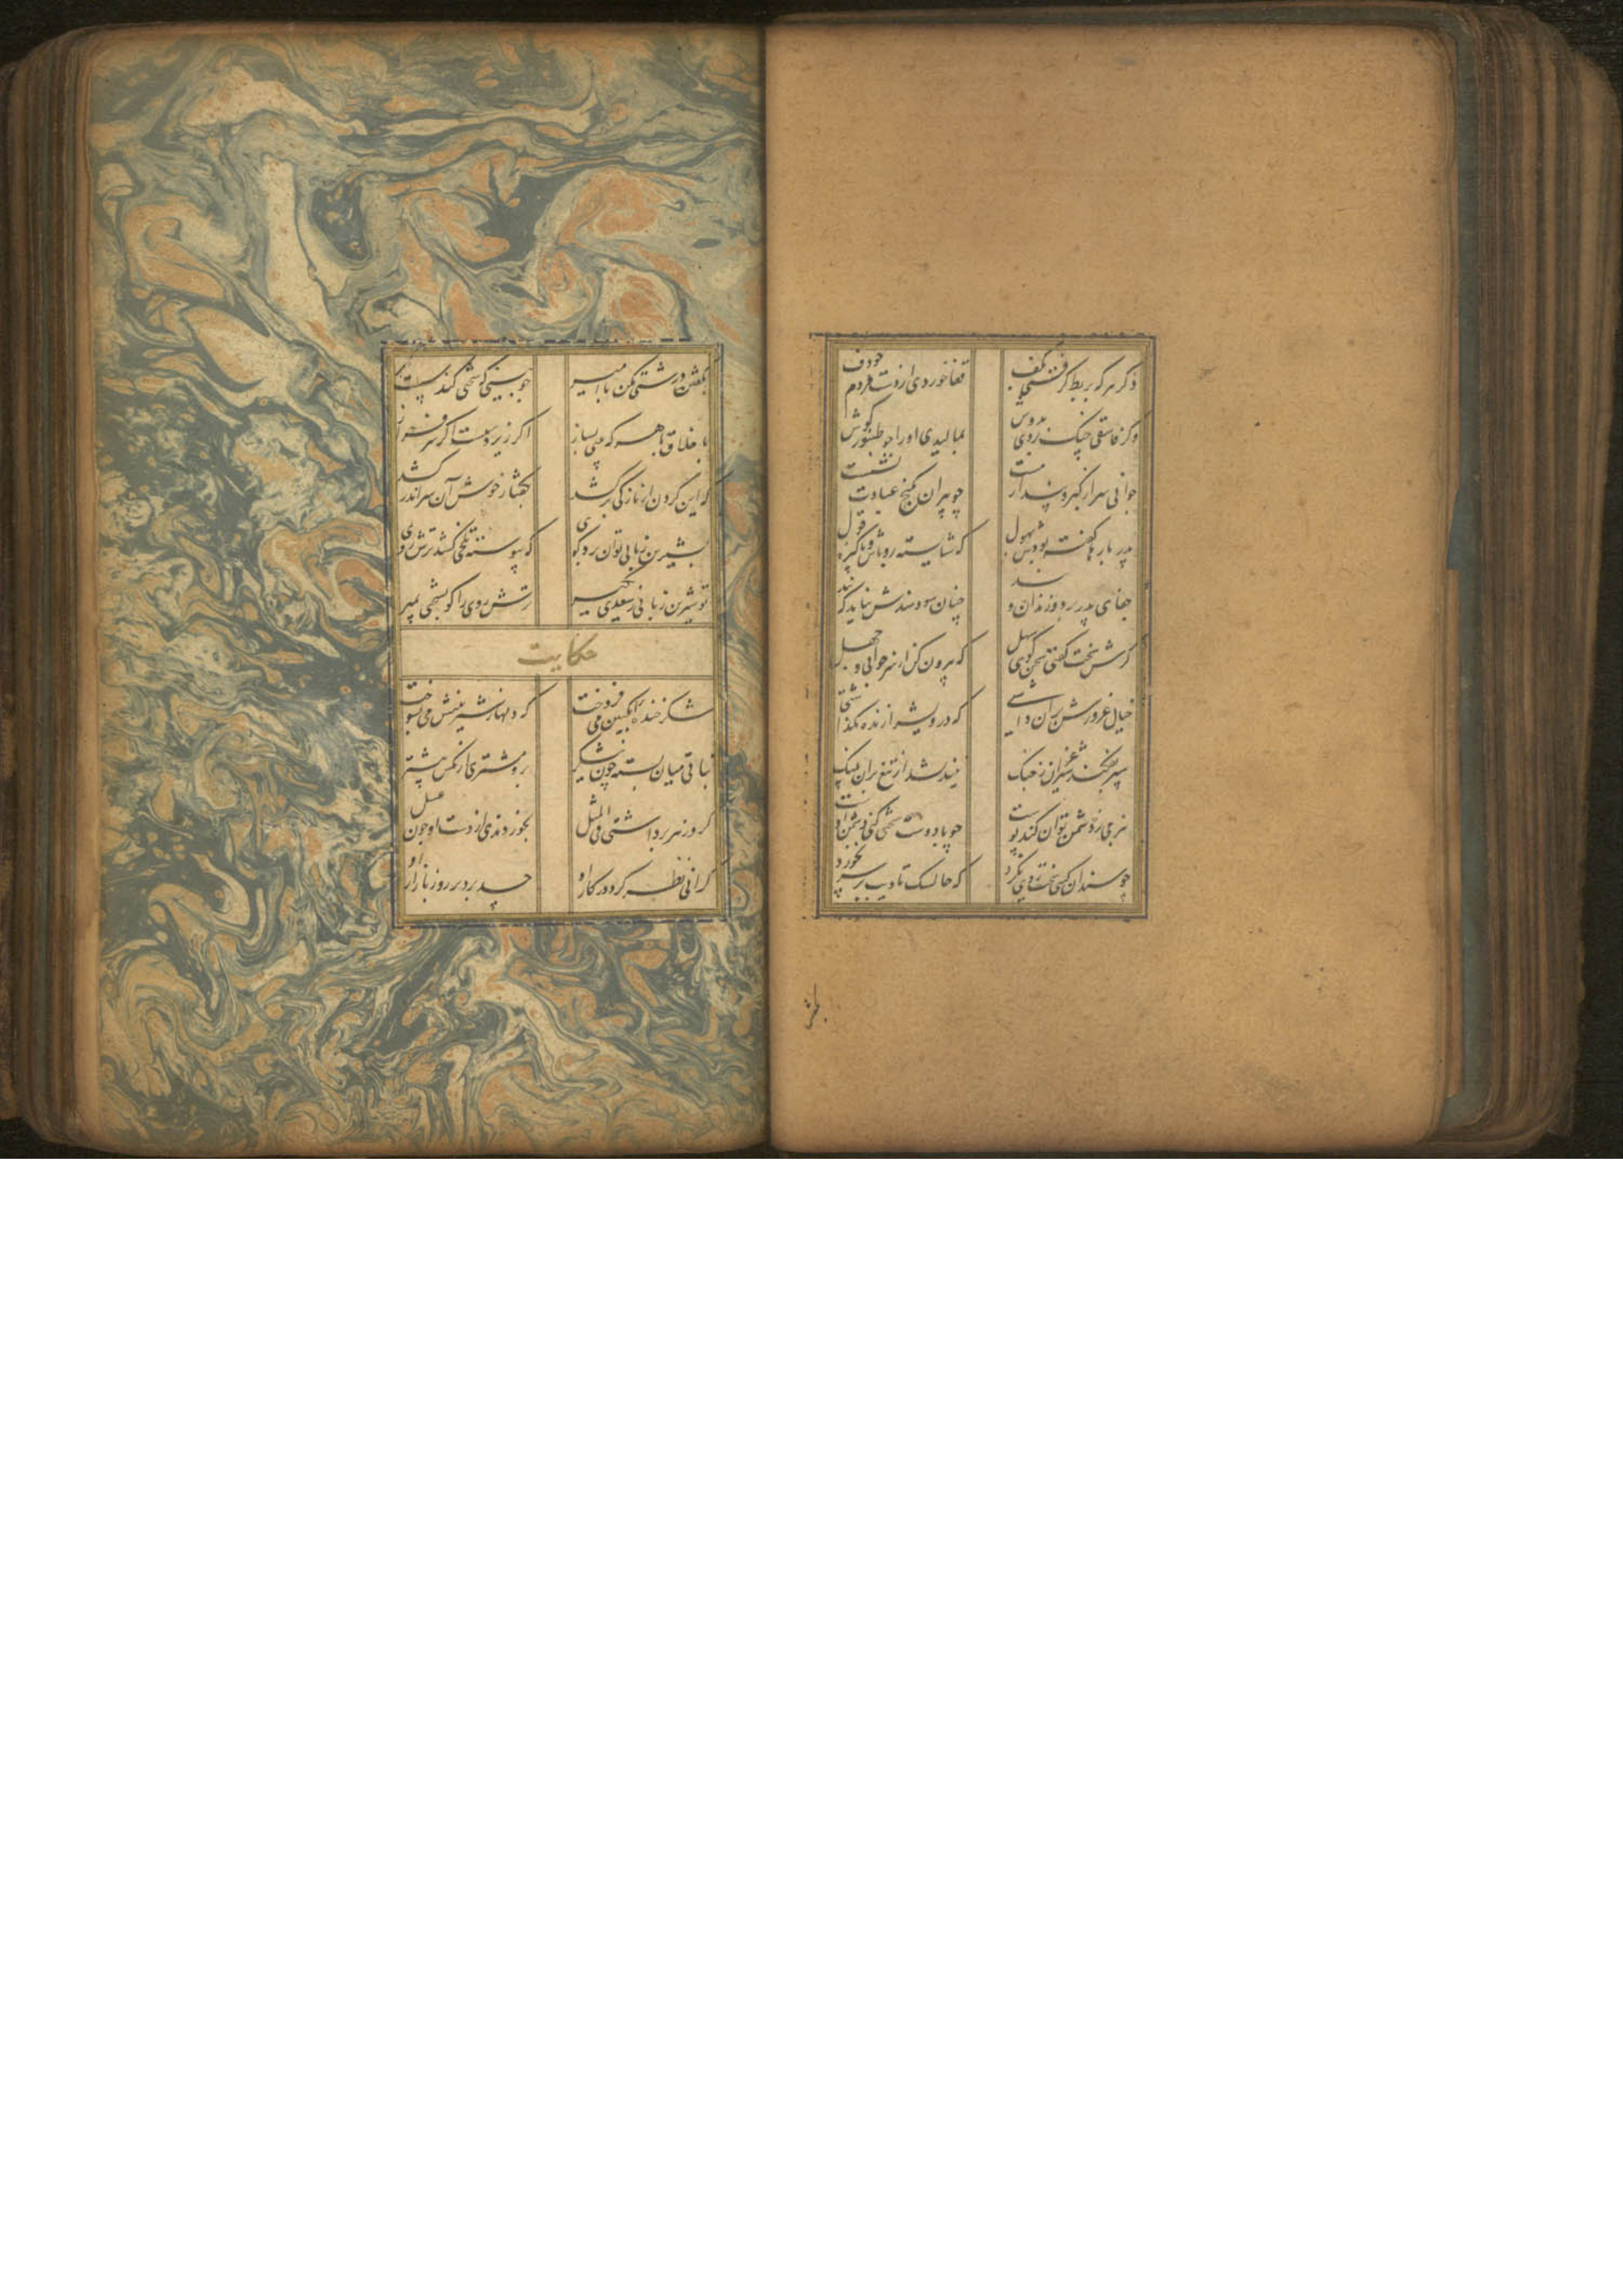 دگر هر که بربط گرفتی بکف
قفا خوردی از دست مردم چو دف
وگر فاسقی چنگ بردی بدوش
بمالیدی او را چو طنبور گوش
جوانی سر از کبر و پندار مست
چو پیران بکنج عبادت نشست
پدر بارها گفته بودش بهول
که شایسته رو باش و پاکیزه قول
جفای پدر برد و زندان و بند
چنان سودمندش نیامد که پند
گرش سخت گفتی سخن گوی سهل
که بیرون کن از سر جوانی و جهل
خیال غرورش بر آن داشتی
که درویش را زنده نگذاشتی
سپر نفکند شیر غران ز جنگ
نیندیشد از تیغ بران پلنگ
بنرمی ز دشمن توان کند پوست
چو با دوست سختی کنی دشمن اوست
چو سندان کسی سخت رویی نکرد
که خایسک تادیب بر سر نخورد
بگفتن درشتی مکن با امیر
چو بینی که سختی کند سست گیر
باخلاق با هر که بینی بساز
اگر زیردست است اگر سرفراز
که این گردن از نازکی برکشد
بگفتار خوش آن سر اندر کشد
بشیرین زبانی توان برد گوی
که پیوسته تلخی کشد ترش روی
تو شیرین زبانی ز سعدی بگیر
ترش روی را گو بسختی بمیر
حکایت
شکر خنده انگبین می فروخت
که دلها ز شیرینیش می بسوخت
نباتی میان بسته چون نیشکر
برو مشتری از مگس بیشتر
گر او زهر برداشتی فی المثل
بخوردندی از دست او چون عسل
گرانی نظر کرد در کار او
حسد برد بر روز بازار او